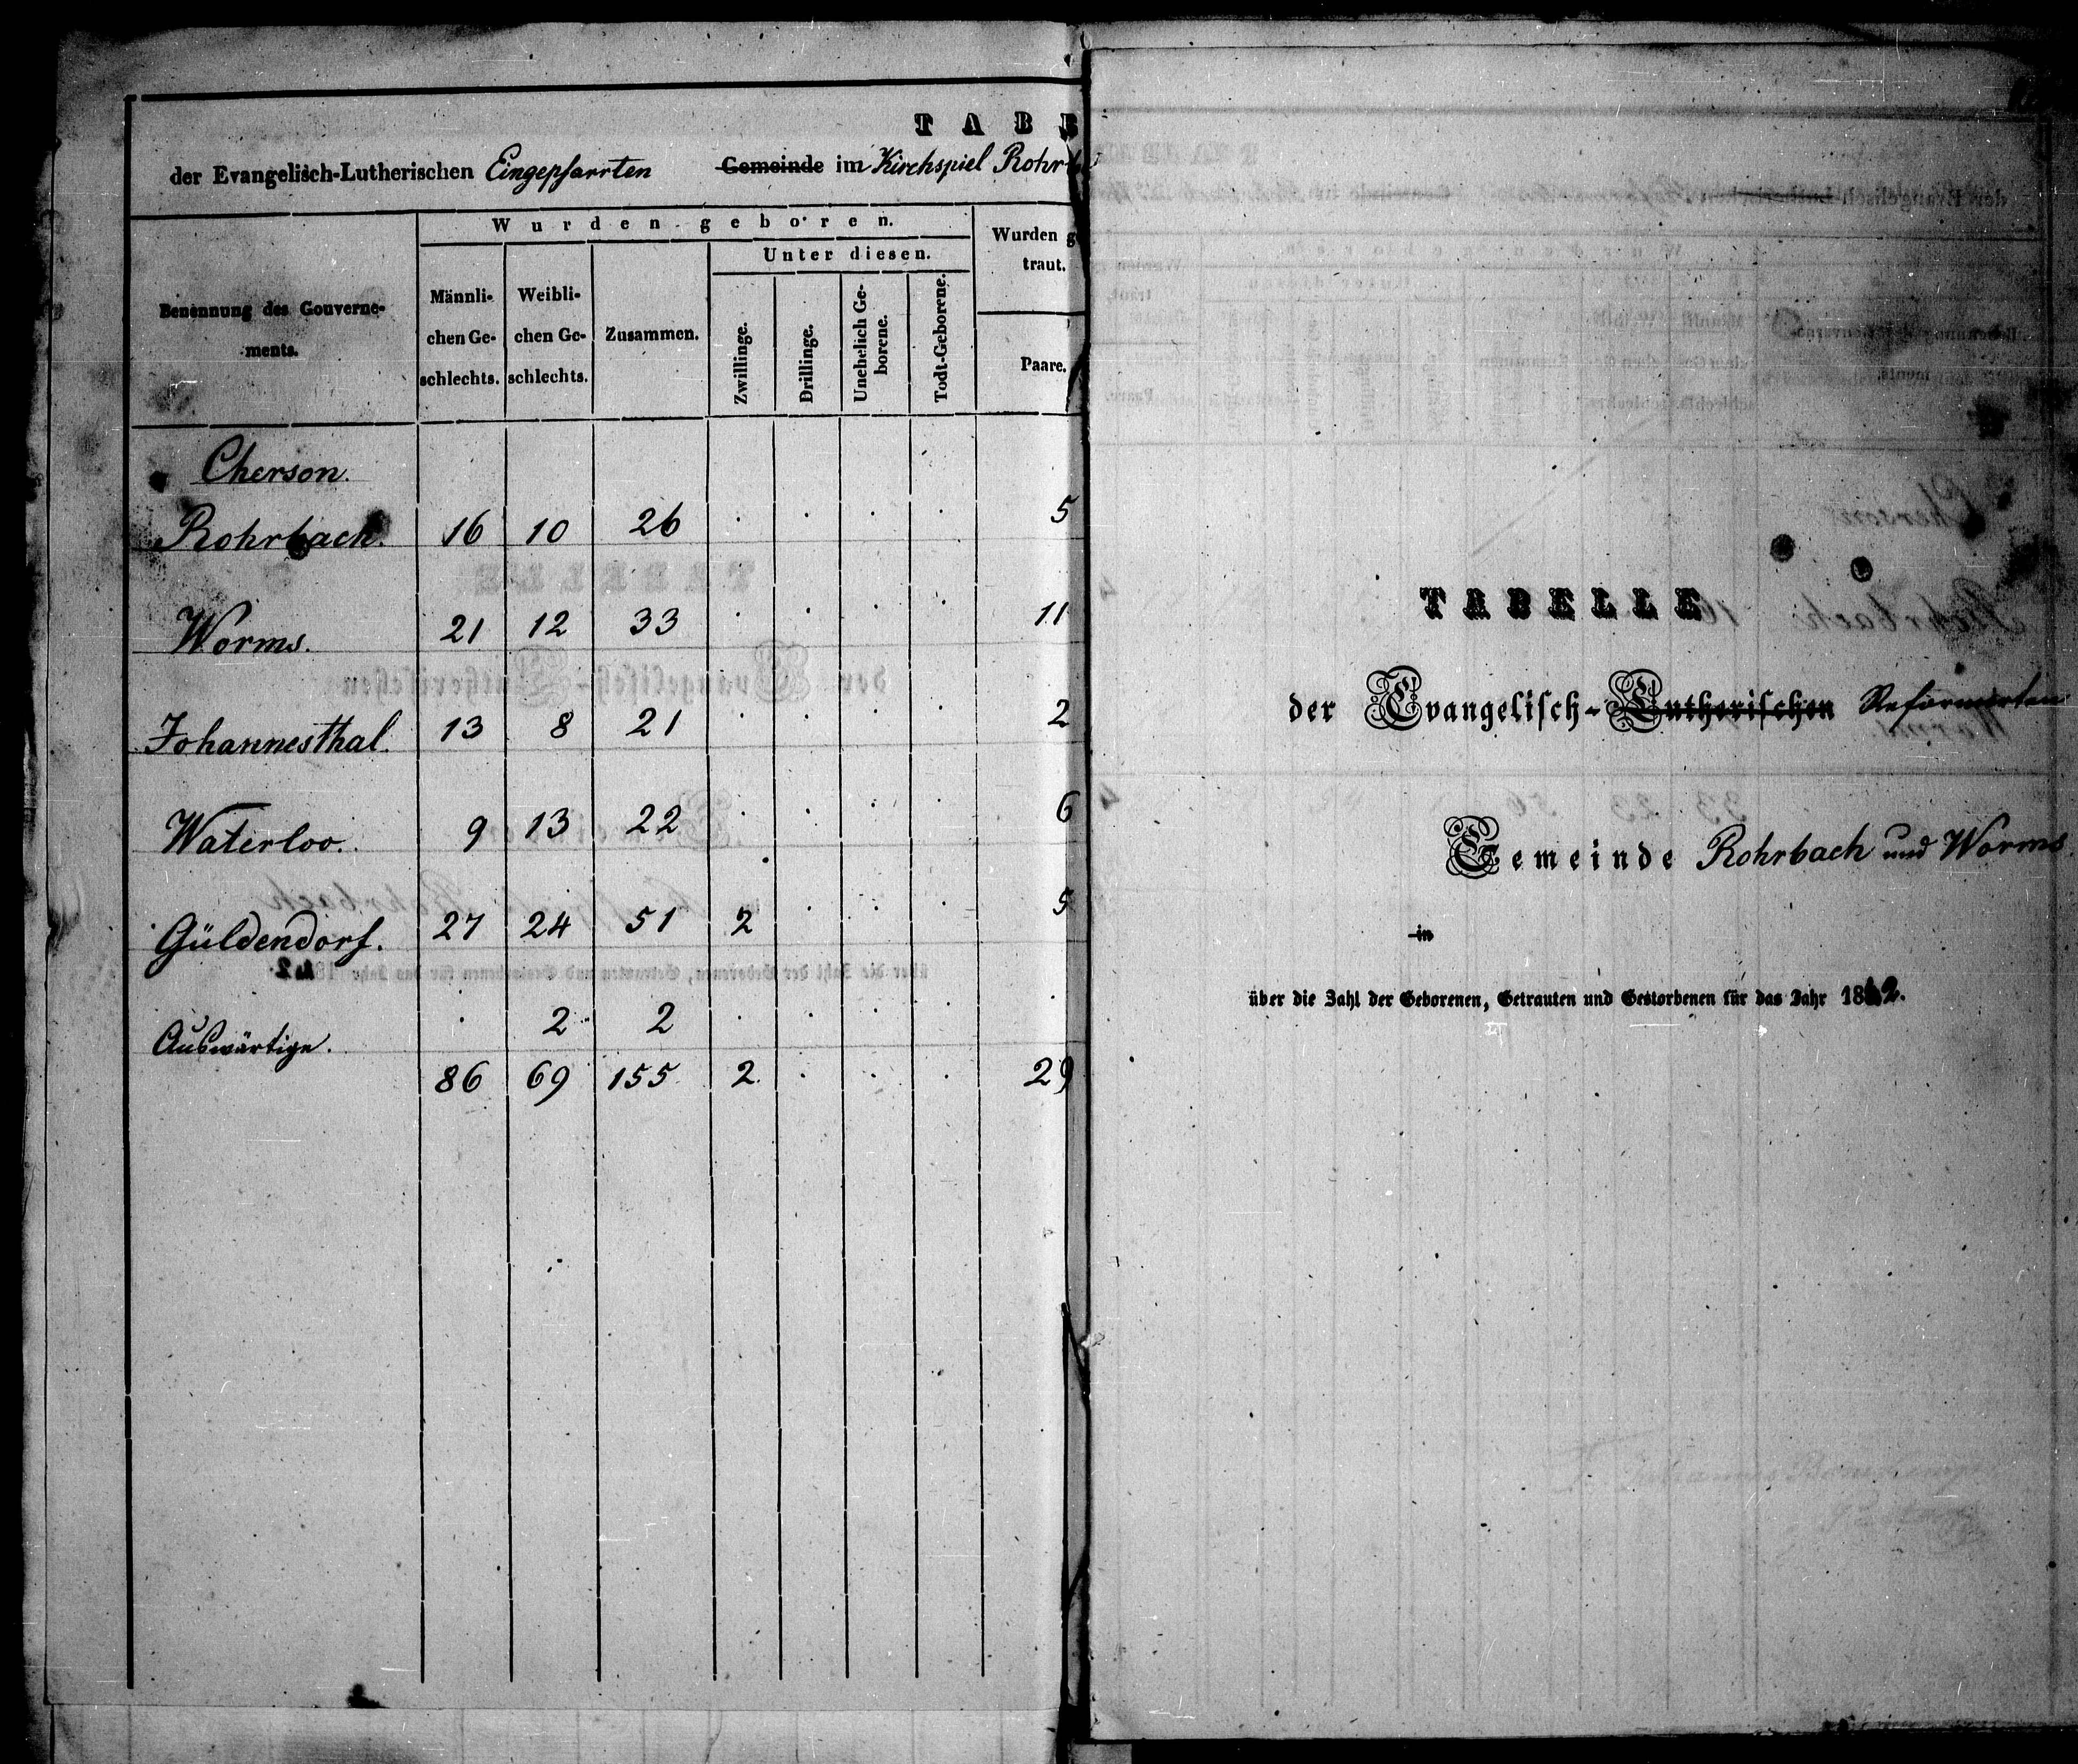 TABE
der Evangelisch-Lutherischen Eingepfarrten Gemeinde im Kirchspiel Rohrb
Benennung des Gouverne-
ments.
Wurden geboren.
Männli-
chen Ge-
schlechts.
Weibli-
chen Ge-
schlechts.
Zusammen.
Unter diesen.
Zwillinge.
Drillinge.
Unehelich Ge-
borene.
Todt-Geborene.
Wurden ge
traut.
Paare.
Cherson.
Rohrbach. 16 10 26 . . . . 5
Worms. 21 12 33 . . . . 11
Johannesthal. 13 8 21 . . . . 2
Waterloo. 9 13 22 . . . . 6
Güldendorf. 27 24 51 2 . . . 5
Auswärtige. . 2 2 . . . . .
86 69 155 2 . . . 29
TABELLE
der Evangelisch-Lutherischen Reformirten
Gemeinde Rohrbach und Worms
in
über die Zahl der Geborenen, Getrauten und Gestorbenen für das Jahr 1842.